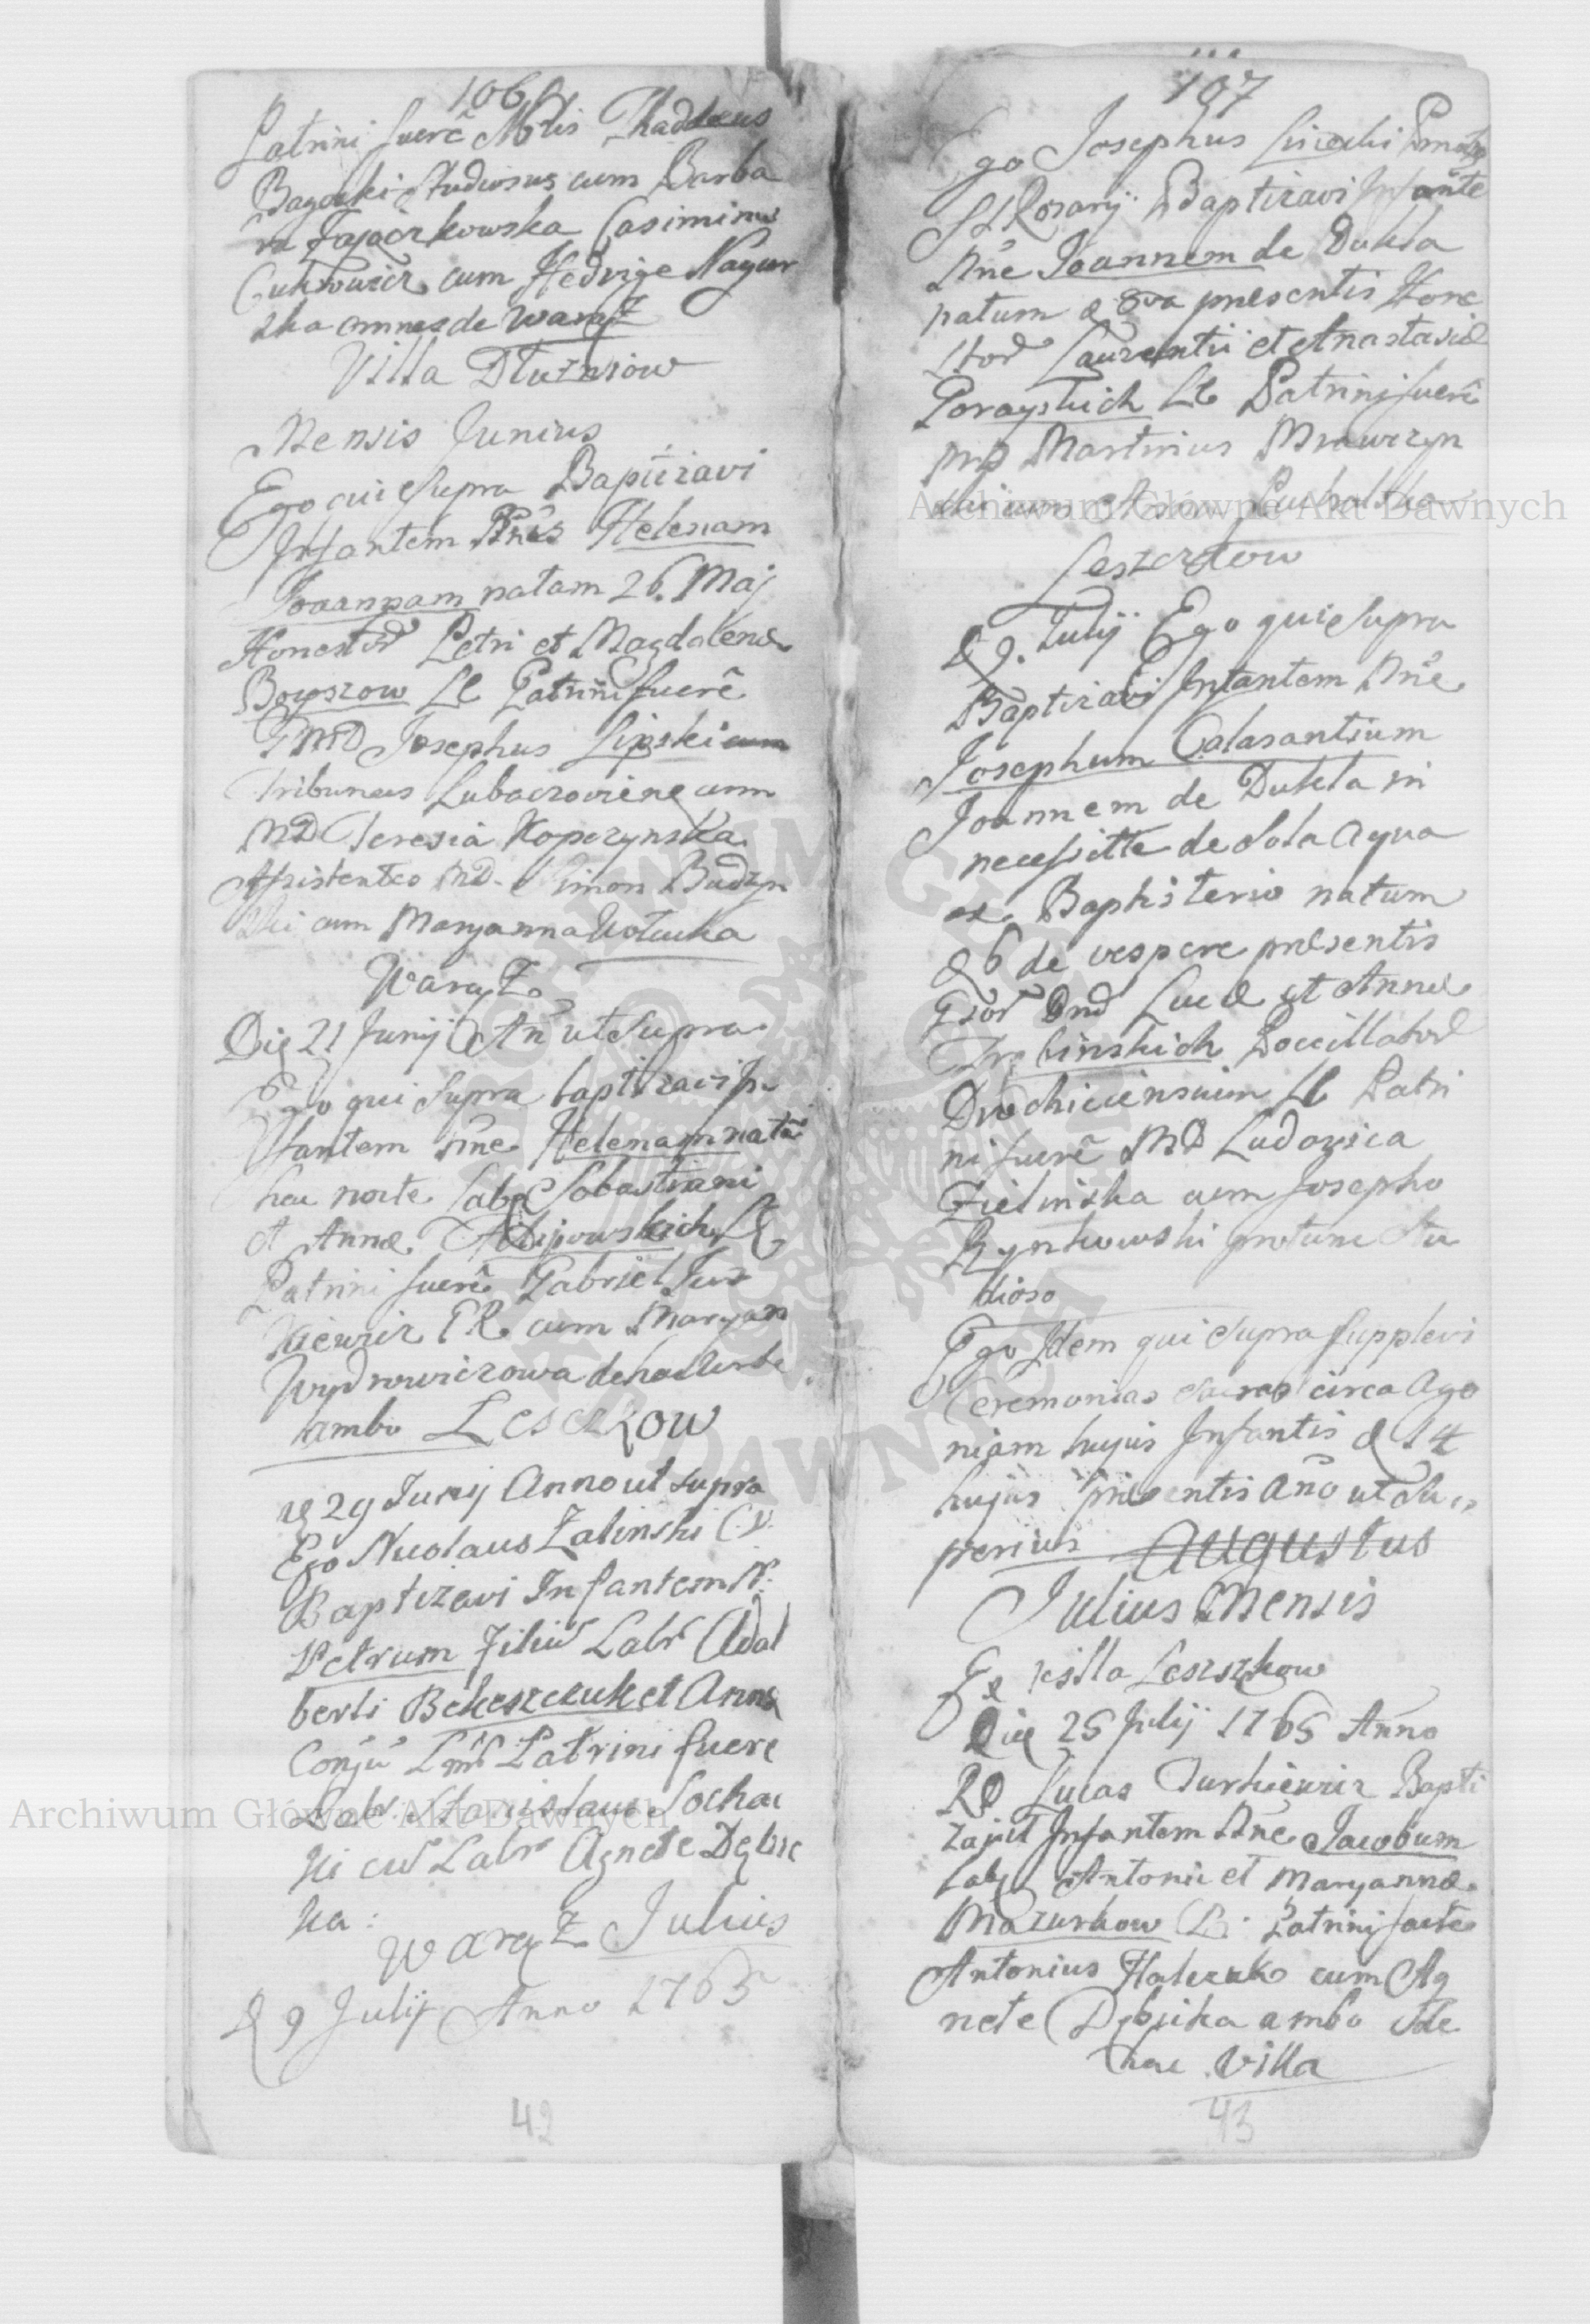 106
Patrini fuerē Mtis Thaddæus
Bagıcki studiosus cum Barba
ra Zajączkowska Casimirus
Cukrowicz cum Hedvige Nagur
ska omnes de Waręz
Villa Dłużniow
Mensis Junius
Ego qui supra Baptizavi
Infantem Nne Helenam
Joannam natam 26 Maij
Honestor Petri et Magdalenæ
Boyszow LC Patrini fuerē
GMD Josephus Lipski cum
Tribunus Lubaczoviene cum
MD Teresia Kopczynska
Assistentes MD. Simon Budzyn
ski cum Maryanna Kotucka
Waręz
Die 21 Junij Añ ut Supra
Ego qui supra baptizavi In
fantem Nne Helenam natā
hac nocte Lab Sebastiani
et Annæ Filipowskich LC
Patrini fuerē Gabriel Jur
kiewicz GR cum Maryan
Wydrowiczowa de hac Urbe
ambo Leszczkow
D 29 Junij Anno ut supra
Ego Nicolaus Zalinski C.V.
Baptizavi Infantem N.
Petrum Filiū Labr Adal
berti Bekeszczuk et Anna
Conju Lmr Patrini fuere
Labr Stanislaus Sochac
ki cū Labr Agnete Dębic
ka:
Waręz Julius
D 9 Julij Anno 1765
42
107
Ego Josephus Lisiecki Pmotor
SS Rosarij Baptizavi Infante
Nne Joannem de Dukla
natum d 8va presentis Hone
stor Laurentii et Anastasiæ
Porayskich LC Patrini fuerē
MD Martinus Mrawczyn
ski cum Anna Puchalska
Leszczkow
D 9. Julij Ego qui supra
Baptizavi Infantem Nne
Josephum Calasantium
Joannem de Dukla in
necessitte de sola aqua
ex Baptisterio natum
d 6 de vespere præsentis
Gsor Dnd Lucæ et Annæ
Trębinskich Pocillator
Drochiciensium LC Patri
ni fuerē MD Ludovica
Zielinska cum Josepho
Rynkowski protunc stu
dioso
Ego Idem qui supra supplevi
Ceremonias sacras circa Ago
niam hujus Infantis d 14
hujus præsentis año ut su
perius Augustus
Julius Mensis
Villa Leszczkow
Die 25 Julij 1765 Anno
RD Lucas Turkiewicz Bapti
zavit Infantem Nne Jacobum
Lab Antonii et Maryannæ
Mazurkow LC. Patrini fuere
Antonius Halczuk cum Ag
nete Dębicka ambo de
hac Villa
43
Archiwum Główne Akt Dawnych
Archiwum Główne Akt Dawnych